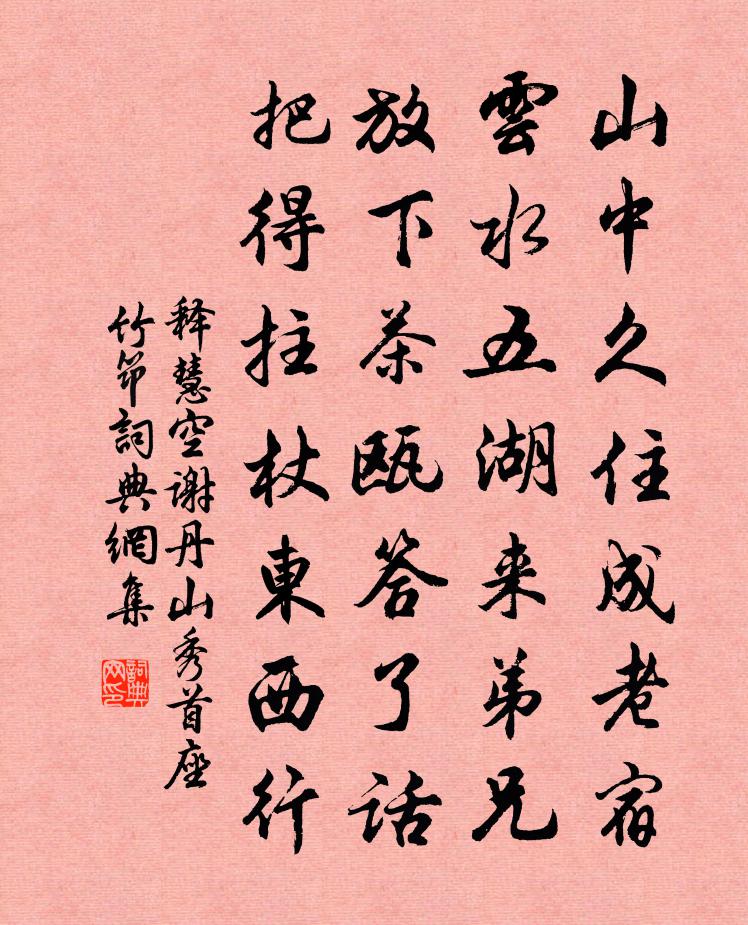 山中久住成老宿
雲水五湖来弟兄
放下茶甌答了话
把得拄杖東西行
释慧空谢丹山秀首座
竹笻詞典網集
詞典网印